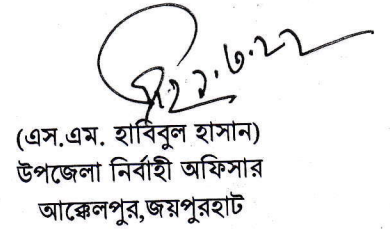 ২১.৩.২২
(এস.এম. হাবিবুল হাসান)
উপজেলা নির্বাহী অফিসার
আক্কেলপুর,জয়পুরহাট